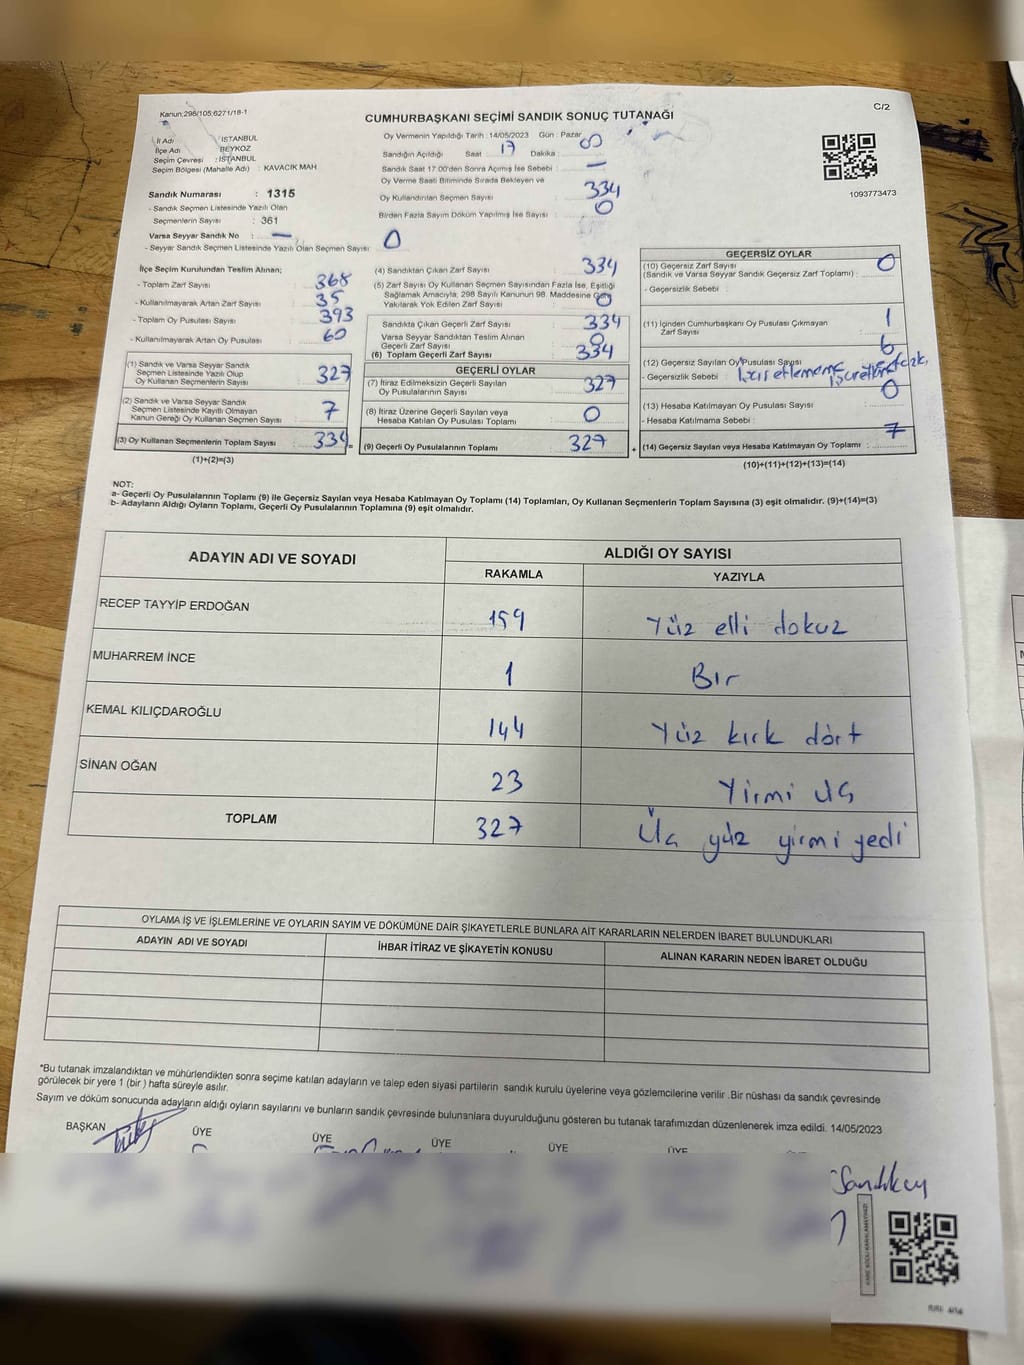 Kanun:298/105;6271/18-1
C/2
CUMHURBAŞKANI SEÇİMİ SANDIK SONUÇ TUTANAĞI
İl Adı : İSTANBUL
İlçe Adı BEYKOZ
Seçim Çevresi : İSTANBUL
Seçim Bölgesi (Mahalle Adı) : KAVACIK MAH
Sandık Numarası : 1315
- Sandık Seçmen Listesinde Yazılı Olan
Seçmenlerin Sayısı : 361
Varsa Seyyar Sandık No : —
- Seyyar Sandık Seçmen Listesinde Yazılı Olan Seçmen Sayısı : 0
Oy Vermenin Yapıldığı Tarih : 14/05/2023 Gün : Pazar
Sandığın Açıldığı Saat 17 Dakika
Sandık Saat 17:00'den Sonra Açılmış İse Sebebi : —
Oy Verme Saati Bitiminde Sırada Bekleyen ve
Oy Kullandırılan Seçmen Sayısı 334
Birden Fazla Sayım Döküm Yapılmış İse Sayısı : 0
1093773473
İlçe Seçim Kurulundan Teslim Alınan;
- Toplam Zarf Sayısı : 368
- Kullanılmayarak Artan Zarf Sayısı : 35
- Toplam Oy Pusulası Sayısı : 393
- Kullanılmayarak Artan Oy Pusulası : 60
(1) Sandık ve Varsa Seyyar Sandık
Seçmen Listesinde Yazılı Olup
Oy Kullanan Seçmenlerin Sayısı : 327
(2) Sandık ve Varsa Seyyar Sandık
Seçmen Listesinde Kayıtlı Olmayan
Kanun Gereği Oy Kullanan Seçmen Sayısı : 7
(3) Oy Kullanan Seçmenlerin Toplam Sayısı : 334
(1)+(2)=(3)
(4) Sandıktan Çıkan Zarf Sayısı : 334
(5) Zarf Sayısı Oy Kullanan Seçmen Sayısından Fazla İse, Eşitliği
Sağlamak Amacıyla, 298 Sayılı Kanunun 98. Maddesine Göre
Yakılarak Yok Edilen Zarf Sayısı : 0
Sandıkta Çıkan Geçerli Zarf Sayısı : 334
Varsa Seyyar Sandıktan Teslim Alınan
Geçerli Zarf Sayısı : 0
(6) Toplam Geçerli Zarf Sayısı : 334
GEÇERLİ OYLAR
(7) İtiraz Edilmeksizin Geçerli Sayılan
Oy Pusulalarının Sayısı : 327
(8) İtiraz Üzerine Geçerli Sayılan veya
Hesaba Katılan Oy Pusulası Toplamı : 0
(9) Geçerli Oy Pusulalarının Toplamı : 327
GEÇERSİZ OYLAR
(10) Geçersiz Zarf Sayısı
(Sandık ve Varsa Seyyar Sandık Geçersiz Zarf Toplamı) : 0
- Geçersizlik Sebebi :
(11) İçinden Cumhurbaşkanı Oy Pusulası Çıkmayan
Zarf Sayısı : 1
(12) Geçersiz Sayılan Oy Pusulası Sayısı : 6
- Geçersizlik Sebebi :
(13) Hesaba Katılmayan Oy Pusulası Sayısı : 0
- Hesaba Katılmama Sebebi :
(14) Geçersiz Sayılan veya Hesaba Katılmayan Oy Toplamı : 7
(10)+(11)+(12)+(13)=(14)
NOT:
a- Geçerli Oy Pusulalarının Toplamı (9) ile Geçersiz Sayılan veya Hesaba Katılmayan Oy Toplamı (14) Toplamları, Oy Kullanan Seçmenlerin Toplam Sayısına (3) eşit olmalıdır. (9)+(14)=(3)
b- Adayların Aldığı Oyların Toplamı, Geçerli Oy Pusulalarının Toplamına (9) eşit olmalıdır.
ADAYIN ADI VE SOYADI
ALDIĞI OY SAYISI
RAKAMLA YAZIYLA
RECEP TAYYİP ERDOĞAN 159 Yüz elli dokuz
MUHARREM İNCE 1 Bır
KEMAL KILIÇDAROĞLU 144 Yüz kırk dört
SİNAN OĞAN 23 Yirmi üç
TOPLAM 327 Üç yüz yirmi yedi
OYLAMA İŞ VE İŞLEMLERİNE VE OYLARIN SAYIM VE DÖKÜMÜNE DAİR ŞİKAYETLERLE BUNLARA AİT KARARLARIN NELERDEN İBARET BULUNDUKLARI
ADAYIN ADI VE SOYADI İHBAR İTİRAZ VE ŞİKAYETİN KONUSU ALINAN KARARIN NEDEN İBARET OLDUĞU
*Bu tutanak imzalandıktan ve mühürlendikten sonra seçime katılan adayların ve talep eden siyasi partilerin sandık kurulu üyelerine veya gözlemcilerine verilir .Bir nüshası da sandık çevresinde
görülecek bir yere 1 (bir ) hafta süreyle asılır.
Sayım ve döküm sonucunda adayların aldığı oyların sayılarını ve bunların sandık çevresinde bulunanlara duyurulduğunu gösteren bu tutanak tarafımızdan düzenlenerek imza edildi. 14/05/2023
BAŞKAN ÜYE ÜYE ÜYE ÜYE ÜYE